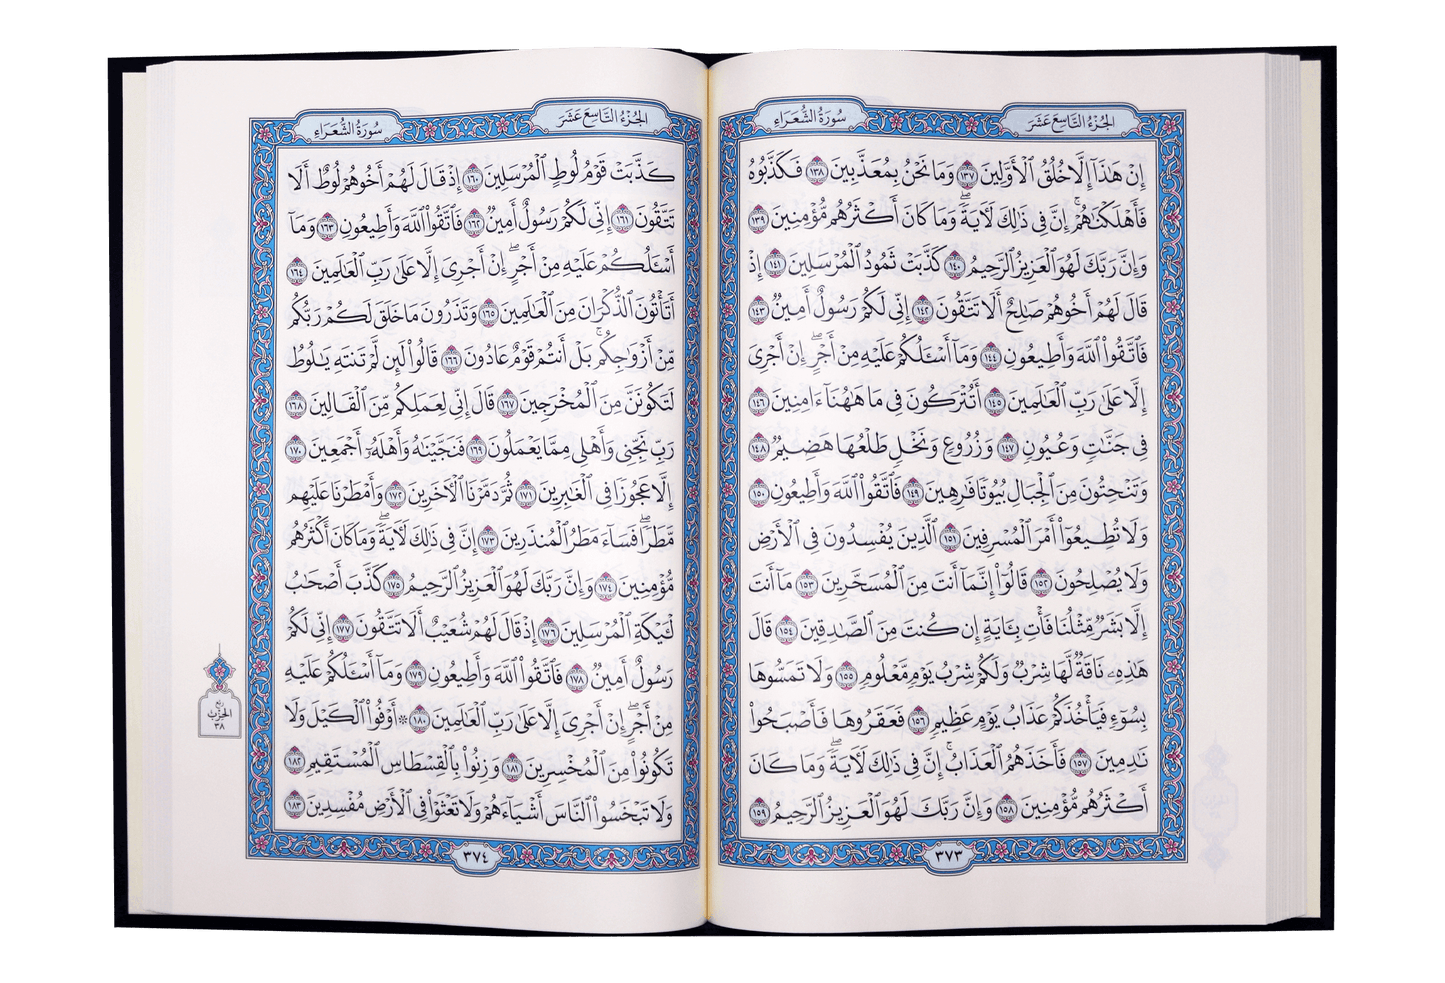 سُورَةُ الشُّعَرَاءِ
الجُزْءُ التَّاسِعَ عَشَرَ
إِنْ هَٰذَآ إِلَّا خُلُقُ ٱلْأَوَّلِينَ ١٣٧ وَمَا نَحْنُ بِمُعَذَّبِينَ ١٣٨ فَكَذَّبُوهُ
فَأَهْلَكْنَٰهُمْۚ إِنَّ فِى ذَٰلِكَ لَأٓيَةًۖ وَمَا كَانَ أَكْثَرُهُم مُّؤْمِنِينَ ١٣٩
وَإِنَّ رَبَّكَ لَهُوَ ٱلْعَزِيزُ ٱلرَّحِيمُ ١٤٠ كَذَّبَتْ ثَمُودُ ٱلْمُرْسَلِينَ ١٤١ إِذْ
قَالَ لَهُمْ أَخُوهُمْ صَٰلِحٌ أَلَا تَتَّقُونَ ١٤٢ إِنِّى لَكُمْ رَسُولٌ أَمِينٌ ١٤٣
فَٱتَّقُوا۟ ٱللَّهَ وَأَطِيعُونِ ١٤٤ وَمَآ أَسْـَٔلُكُمْ عَلَيْهِ مِنْ أَجْرٍۖ إِنْ أَجْرِىَ
إِلَّا عَلَىٰ رَبِّ ٱلْعَٰلَمِينَ ١٤٥ أَتُتْرَكُونَ فِى مَا هَٰهُنَآ ءَامِنِينَ ١٤٦
فِى جَنَّٰتٍ وَعُيُونٍ ١٤٧ وَزُرُوعٍ وَنَخْلٍ طَلْعُهَا هَضِيمٌ ١٤٨
وَتَنْحِتُونَ مِنَ ٱلْجِبَالِ بُيُوتًا فَٰرِهِينَ ١٤٩ فَٱتَّقُوا۟ ٱللَّهَ وَأَطِيعُونِ ١٥٠
وَلَا تُطِيعُوٓا۟ أَمْرَ ٱلْمُسْرِفِينَ ١٥١ ٱلَّذِينَ يُفْسِدُونَ فِى ٱلْأَرْضِ
وَلَا يُصْلِحُونَ ١٥٢ قَالُوٓا۟ إِنَّمَآ أَنتَ مِنَ ٱلْمُسَحَّرِينَ ١٥٣ مَآ أَنتَ
إِلَّا بَشَرٌ مِّثْلُنَا فَأْتِ بِـَٔايَةٍ إِن كُنتَ مِنَ ٱلصَّٰدِقِينَ ١٥٤ قَالَ
هَٰذِهِۦ نَاقَةٌ لَّهَا شِرْبٌ وَلَكُمْ شِرْبُ يَوْمٍ مَّعْلُومٍ ١٥٥ وَلَا تَمَسُّوهَا
بِسُوٓءٍ فَيَأْخُذَكُمْ عَذَابُ يَوْمٍ عَظِيمٍ ١٥٦ فَعَقَرُوهَا فَأَصْبَحُوا۟
نَٰدِمِينَ ١٥٧ فَأَخَذَهُمُ ٱلْعَذَابُۚ إِنَّ فِى ذَٰلِكَ لَأٓيَةًۖ وَمَا كَانَ
أَكْثَرُهُم مُّؤْمِنِينَ ١٥٨ وَإِنَّ رَبَّكَ لَهُوَ ٱلْعَزِيزُ ٱلرَّحِيمُ ١٥٩
٣٧٣
سُورَةُ الشُّعَرَاءِ
الجُزْءُ التَّاسِعَ عَشَرَ
كَذَّبَتْ قَوْمُ لُوطٍ ٱلْمُرْسَلِينَ ١٦٠ إِذْ قَالَ لَهُمْ أَخُوهُمْ لُوطٌ أَلَا
تَتَّقُونَ ١٦١ إِنِّى لَكُمْ رَسُولٌ أَمِينٌ ١٦٢ فَٱتَّقُوا۟ ٱللَّهَ وَأَطِيعُونِ ١٦٣ وَمَآ
أَسْـَٔلُكُمْ عَلَيْهِ مِنْ أَجْرٍۖ إِنْ أَجْرِىَ إِلَّا عَلَىٰ رَبِّ ٱلْعَٰلَمِينَ ١٦٤
أَتَأْتُونَ ٱلذُّكْرَانَ مِنَ ٱلْعَٰلَمِينَ ١٦٥ وَتَذَرُونَ مَا خَلَقَ لَكُمْ رَبُّكُم
مِّنْ أَزْوَٰجِكُمۚ بَلْ أَنتُمْ قَوْمٌ عَادُونَ ١٦٦ قَالُوا۟ لَئِن لَّمْ تَنتَهِ يَٰلُوطُ
لَتَكُونَنَّ مِنَ ٱلْمُخْرَجِينَ ١٦٧ قَالَ إِنِّى لِعَمَلِكُم مِّنَ ٱلْقَالِينَ ١٦٨
رَبِّ نَجِّنِى وَأَهْلِى مِمَّا يَعْمَلُونَ ١٦٩ فَنَجَّيْنَٰهُ وَأَهْلَهُۥٓ أَجْمَعِينَ ١٧٠
إِلَّا عَجُوزًا فِى ٱلْغَٰبِرِينَ ١٧١ ثُمَّ دَمَّرْنَا ٱلْأٓخَرِينَ ١٧٢ وَأَمْطَرْنَا عَلَيْهِم
مَّطَرًاۖ فَسَآءَ مَطَرُ ٱلْمُنذَرِينَ ١٧٣ إِنَّ فِى ذَٰلِكَ لَأٓيَةًۖ وَمَا كَانَ أَكْثَرُهُم
مُّؤْمِنِينَ ١٧٤ وَإِنَّ رَبَّكَ لَهُوَ ٱلْعَزِيزُ ٱلرَّحِيمُ ١٧٥ كَذَّبَ أَصْحَٰبُ
لْـَٔيْكَةِ ٱلْمُرْسَلِينَ ١٧٦ إِذْ قَالَ لَهُمْ شُعَيْبٌ أَلَا تَتَّقُونَ ١٧٧ إِنِّى لَكُمْ
رَسُولٌ أَمِينٌ ١٧٨ فَٱتَّقُوا۟ ٱللَّهَ وَأَطِيعُونِ ١٧٩ وَمَآ أَسْـَٔلُكُمْ عَلَيْهِ
مِنْ أَجْرٍۖ إِنْ أَجْرِىَ إِلَّا عَلَىٰ رَبِّ ٱلْعَٰلَمِينَ ١٨٠ ۞ أَوْفُوا۟ ٱلْكَيْلَ وَلَا
تَكُونُوا۟ مِنَ ٱلْمُخْسِرِينَ ١٨١ وَزِنُوا۟ بِٱلْقِسْطَاسِ ٱلْمُسْتَقِيمِ ١٨٢
وَلَا تَبْخَسُوا۟ ٱلنَّاسَ أَشْيَآءَهُمْ وَلَا تَعْثَوْا۟ فِى ٱلْأَرْضِ مُفْسِدِينَ ١٨٣
٣٧٤
ربع
الحزب
٣٨